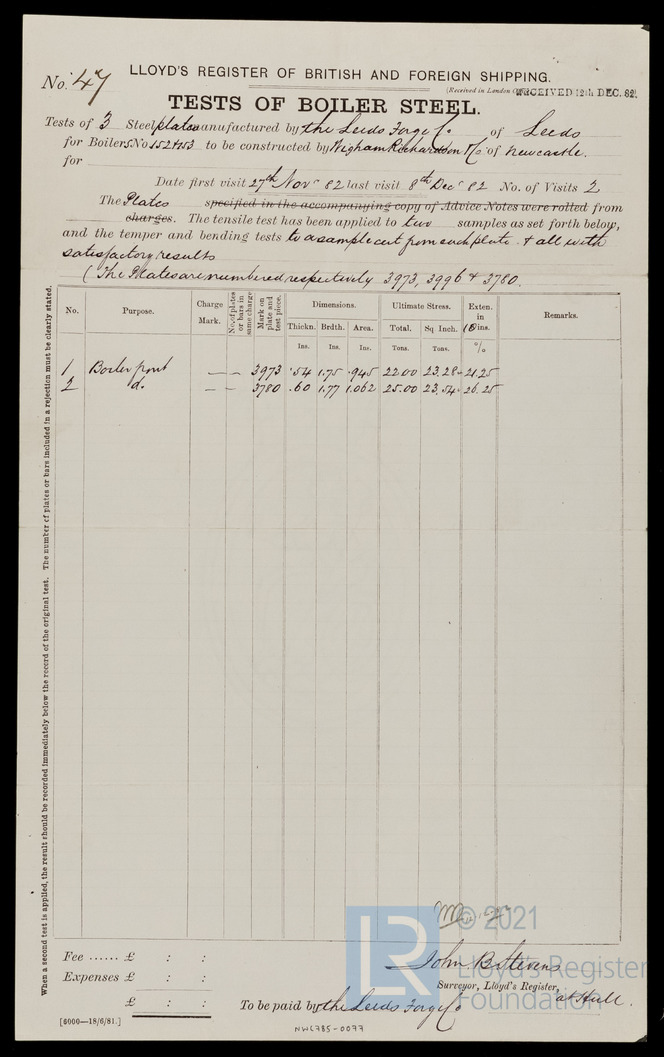 No. 47
LLOYD'S REGISTER OF BRITISH AND FOREIGN SHIPPING.
(Received in London RECEIVED 12th DEC. 82
TESTS OF BOILER STEEL.
Tests of 3 Steel plates manufactured by the Leeds Forge Co of Leeds
for Boilers No 152 & 153 to be constructed by Wigham Richardson & Co of Newcastle.
for
Date first visit 27th Novr 82 last visit 8th Decr 82 No. of Visits 2
The Plates specified in the accompanying copy of Advice Notes were rolled from
charges. The tensile test has been applied to two samples as set forth below,
and the temper and bending tests to a sample cut from each plate & all with
satisfactory results
(The Plates are numbered respectively 3973, 3996 & 3780.
No. Purpose. Charge Mark. No. of plates or bars in same charge Mark on plate and test piece. Dimensions. Ultimate Stress. Exten. in ins. Remarks.
Thickn. Brdth. Area. Total. Sq Inch.
Ins. Ins. Ins. Tons. Tons. %
1 Boiler front — — 3973 .54 1.75 .945 22.00 23.28 21.25
2 do. — — 3780 .60 1.77 1.062 25.00 23.54 26.25
When a second test is applied, the result should be recorded immediately below the record of the original test. The number of plates or bars included in a rejection must be clearly stated.
© 2021
LR
Lloyd's Register
Foundation
Fee ...... £ : :
Expenses £ : :
£ : :
John B Stevens
Surveyor, Lloyd's Register, at Hull.
To be paid by the Leeds Forge Co
[6000—18/6/81.]
NWL785-0077